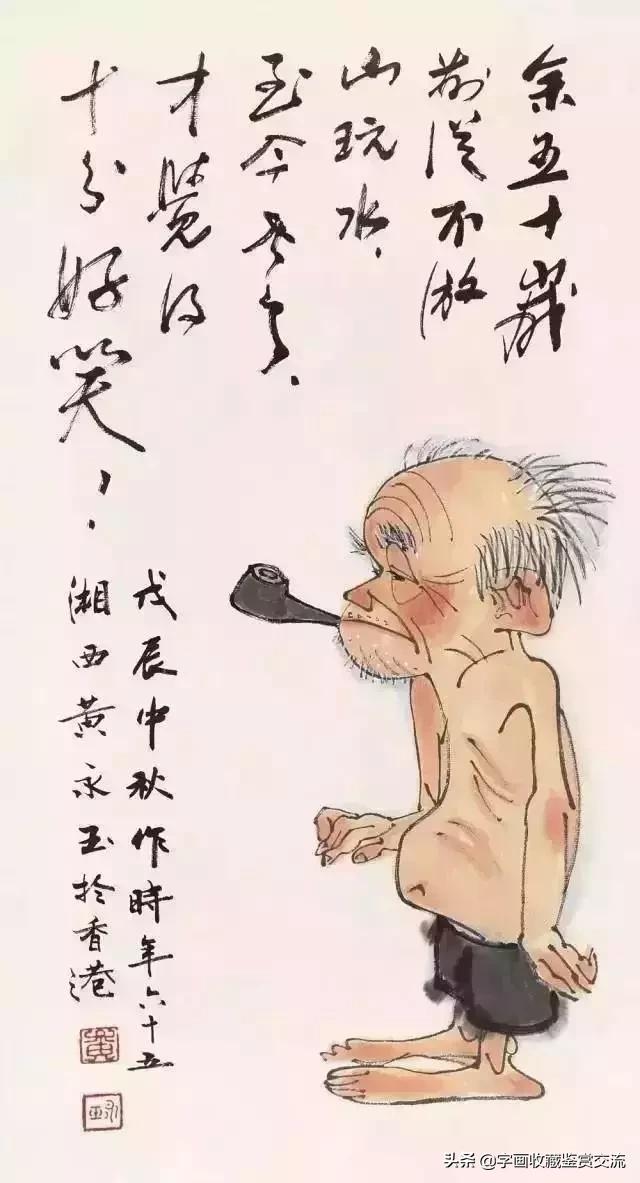 余五十歲
前從不游
山玩水，
至今老矣，
才覺得
十分好笑！
戊辰中秋作時年六十五
湘西黃永玉扵香港
黃
永玉
头条 @字画收藏鉴赏交流